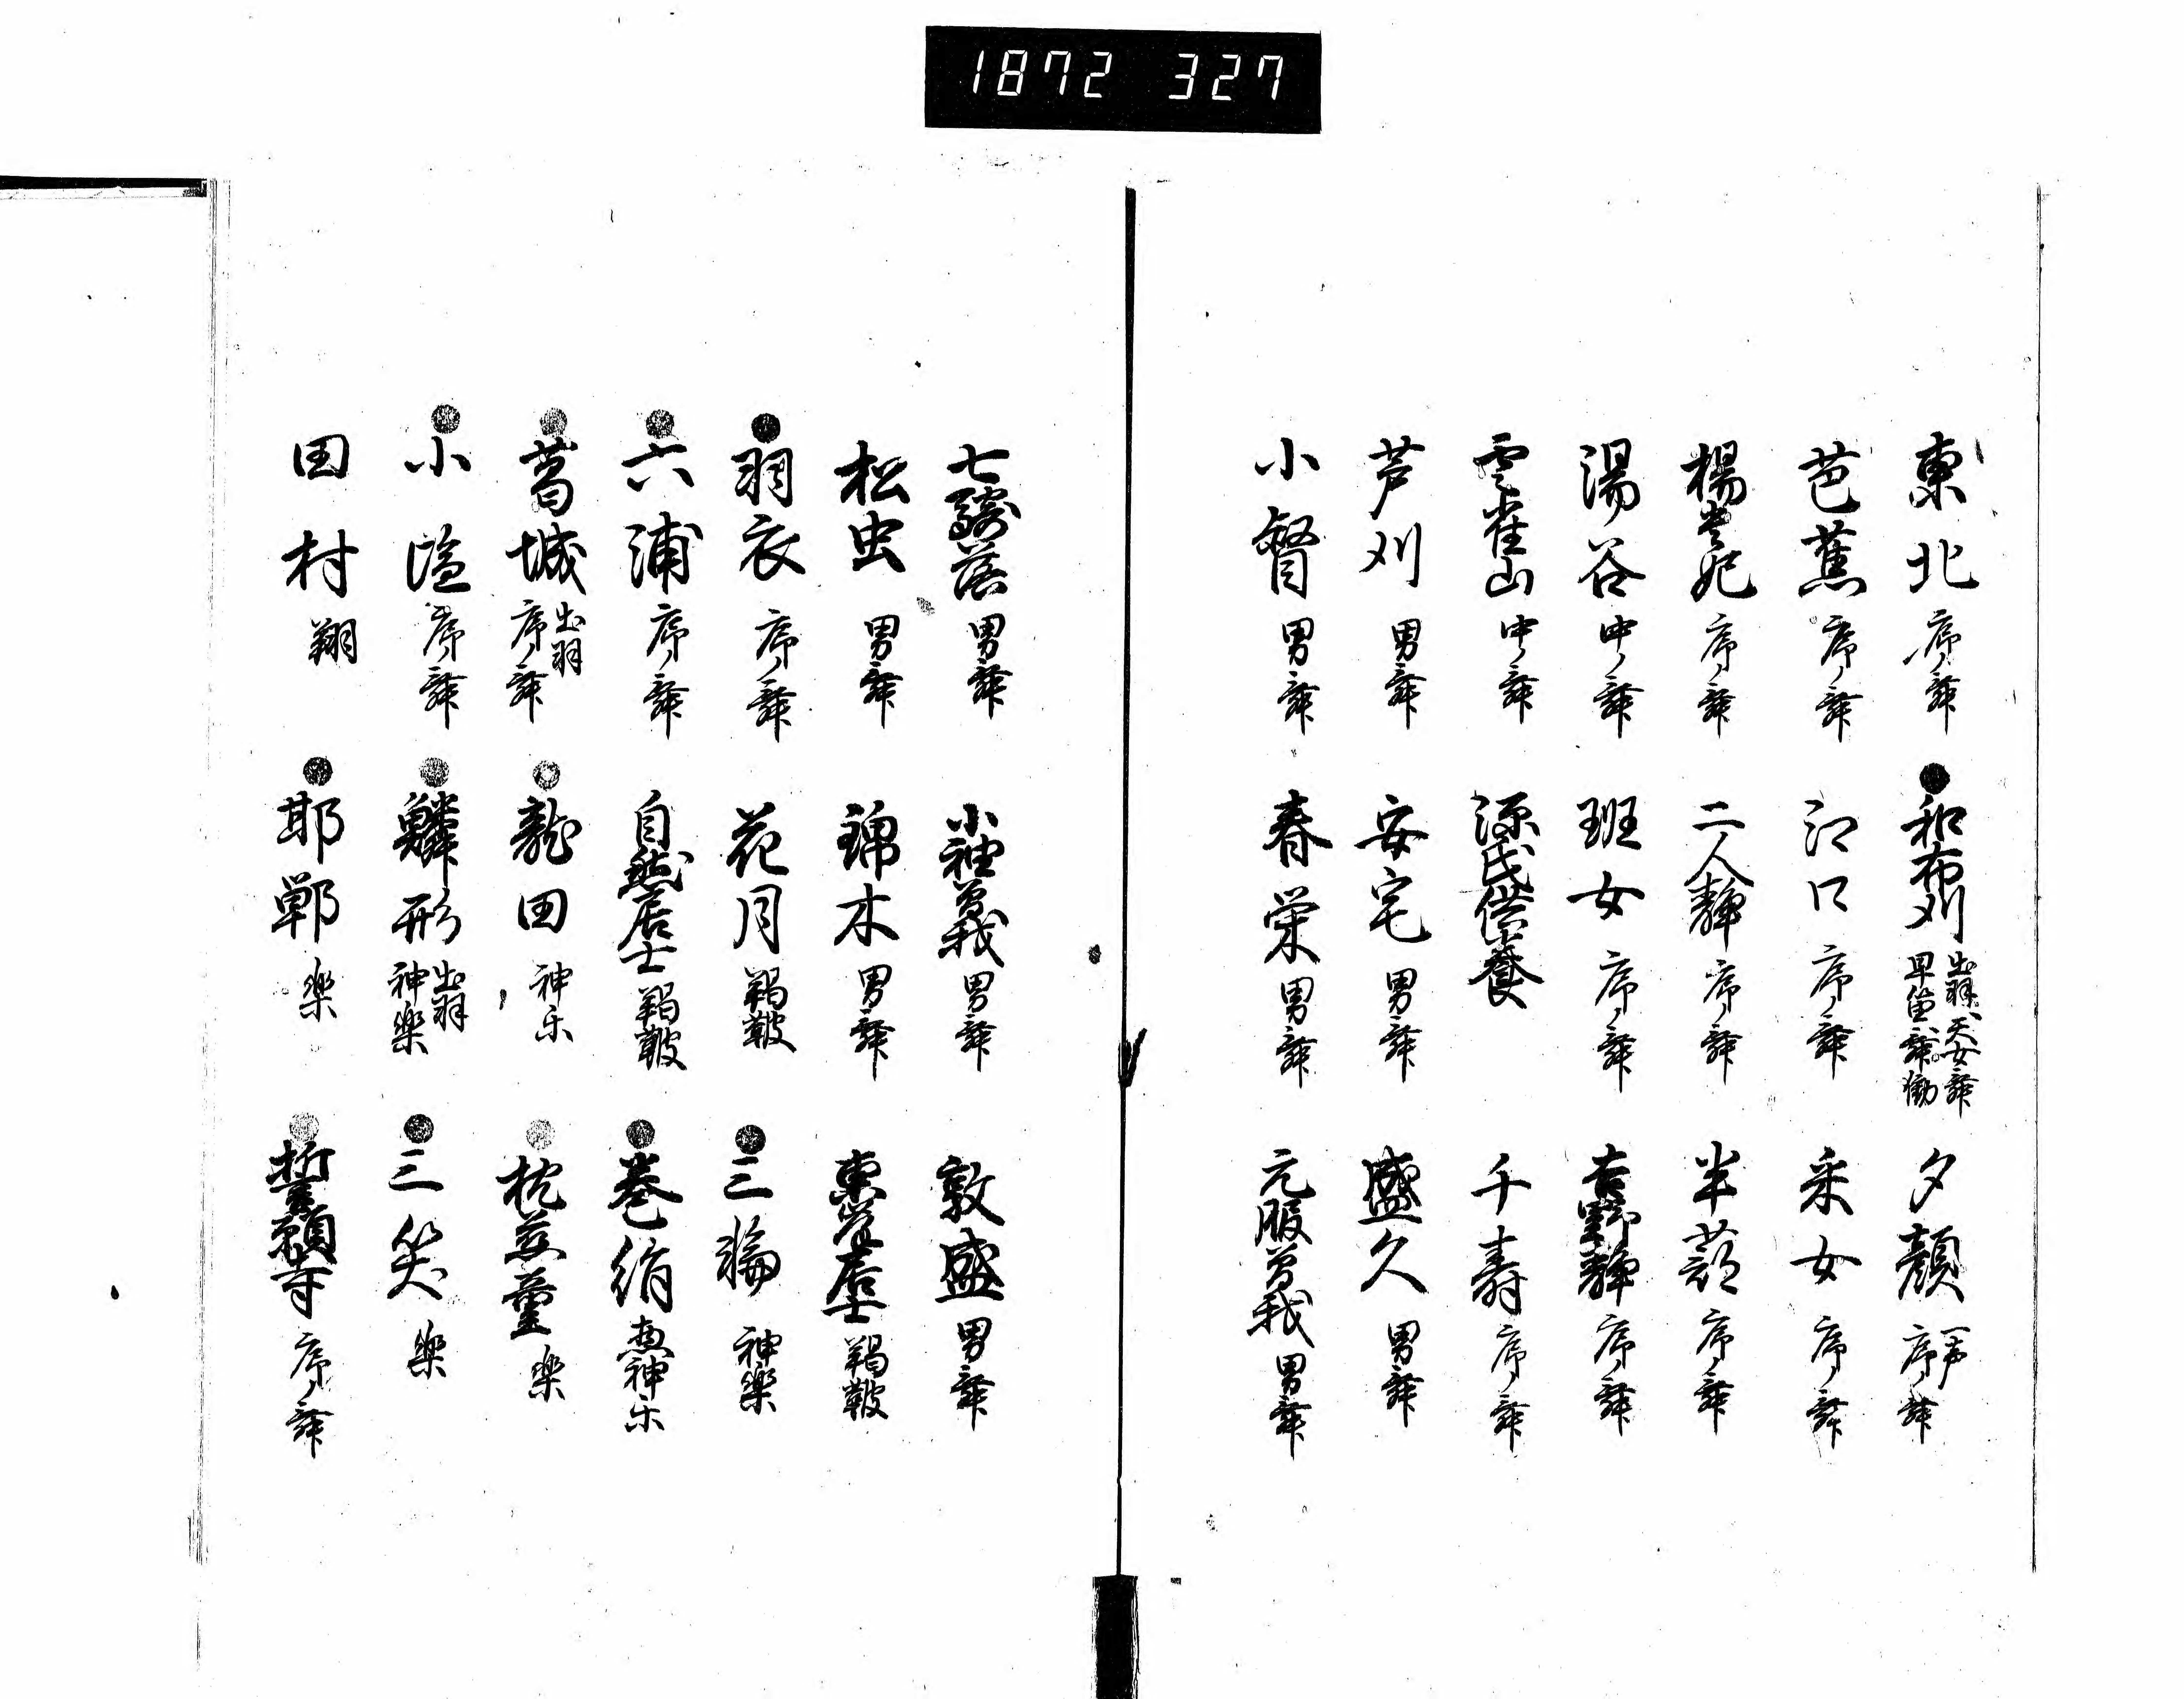 1872 327
東北 序ノ舞 ●和布刈 出羽、天女舞 早笛、舞働 夕顔 一声 序ノ舞
芭蕉 序ノ舞 江口 序ノ舞 采女 序ノ舞
楊貴妃 序ノ舞 二人静 序ノ舞 半蔀 序ノ舞
湯谷 中ノ舞 班女 序ノ舞 吉野静 序ノ舞
雲雀山 中ノ舞 源氏供養 千寿 序ノ舞
芦刈 男舞 安宅 男舞 盛久 男舞
小督 男舞 春栄 男舞 元服曽我 男舞
七騎落 男舞 小袖曽我 男舞 敦盛 男舞
松虫 男舞 錦木 男舞 東岸居士 羯鼓
●羽衣 序ノ舞 花月 羯鼓 ●三輪 神楽
●六浦 序ノ舞 自然居士 羯鼓 ●巻絹 神楽
●葛城 出羽 序ノ舞 ●龍田 神楽 ●枕慈童 楽
●小塩 序ノ舞 ●鱗形 出羽 神楽 ●三笑 楽
田村 翔 ●邯鄲 楽 ●誓願寺 序ノ舞